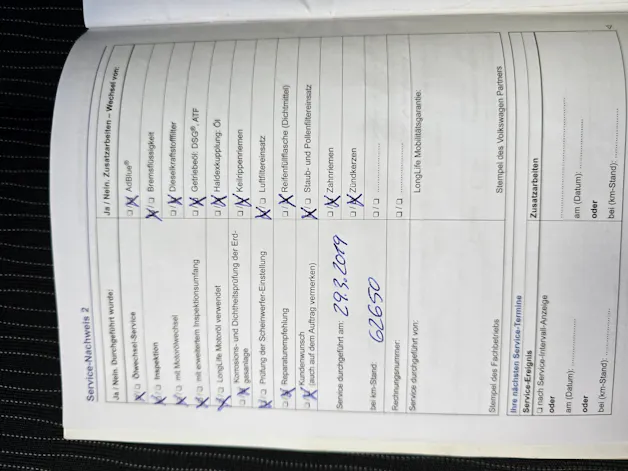 Service-Nachweis 2
Ja / Nein. Durchgeführt wurde:
☒ / ☐ Ölwechsel-Service
☒ / ☐ Inspektion
☒ / ☐ mit Motorölwechsel
☒ / ☐ mit erweitertem Inspektionsumfang
☒ / ☐ LongLife Motoröl verwendet
☐ / ☒ Korrosions- und Dichtheitsprüfung der Erd-
gasanlage
☒ / ☐ Prüfung der Scheinwerfer-Einstellung
☐ / ☒ Reparaturempfehlung
☐ / ☒ Kundenwunsch
(auch auf dem Auftrag vermerken)
Service durchgeführt am: 29.3.2019
bei km-Stand: 62650
Rechnungsnummer:
Service durchgeführt von:
Stempel des Fachbetriebs
Ja / Nein. Zusatzarbeiten – Wechsel von:
☐ / ☒ AdBlue®
☒ / ☐ Bremsflüssigkeit
☐ / ☒ Dieselkraftstofffilter
☐ / ☒ Getriebeöl: DSG® ATF
☐ / ☒ Haldexkupplung: Öl
☐ / ☒ Keilrippenriemen
☒ / ☐ Luftfiltereinsatz
☐ / ☒ Reifenfüllflasche (Dichtmittel)
☒ / ☐ Staub- und Pollenfiltereinsatz
☐ / ☒ Zahnriemen
☐ / ☒ Zündkerzen
☐ / ☐ ....................
☐ / ☐ ....................
LongLife Mobilitätsgarantie:
Stempel des Volkswagen Partners
Ihre nächsten Service-Termine
Service-Ereignis
☐ nach Service-Intervall-Anzeige
oder
am (Datum): ....................
oder
bei (km-Stand): ....................
Zusatzarbeiten
....................
am (Datum): ....................
oder
bei (km-Stand): ....................